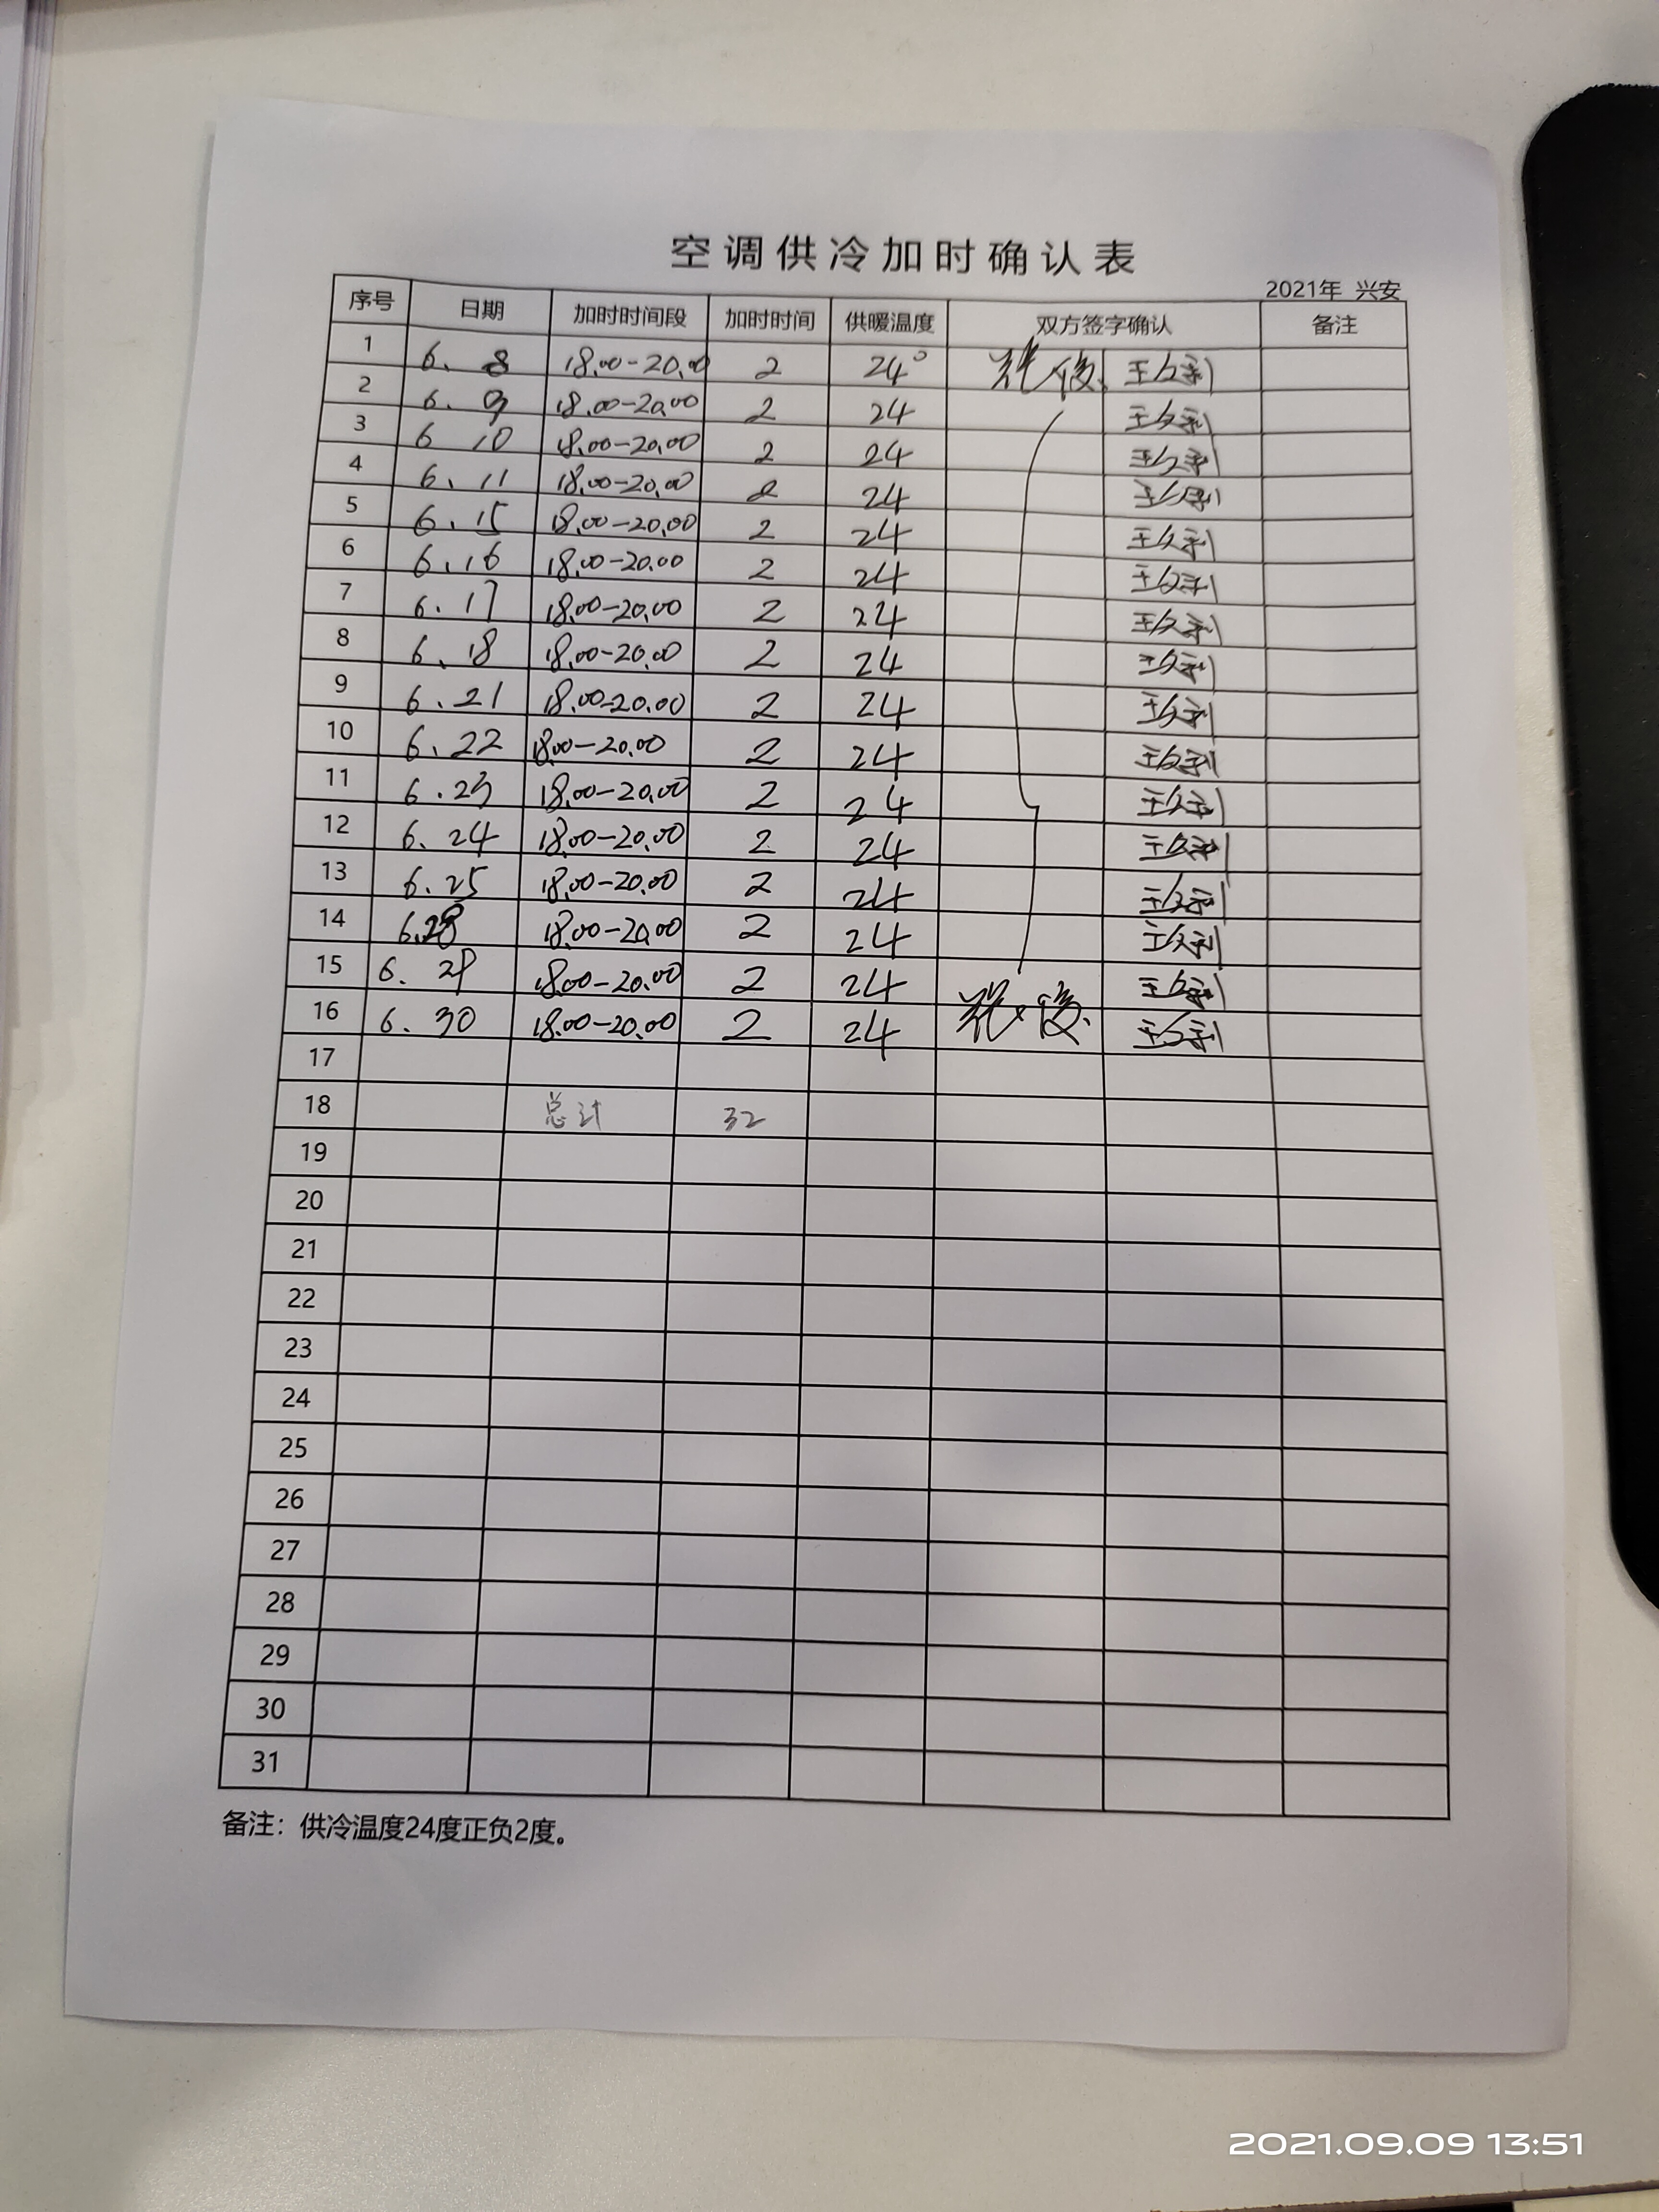 空调供冷加时确认表
2021年 兴安
序号 日期 加时时间段 加时时间 供暖温度 双方签字确认 备注
1 6. 8 18.00-20.00 2 24°
2 6. 9 18.00-20.00 2 24
3 6 10 18.00-20.00 2 24
4 6. 11 18.00-20.00 2 24
5 6. 15 18.00-20.00 2 24
6 6. 16 18.00-20.00 2 24
7 6. 17 18.00-20.00 2 24
8 6. 18 18.00-20.00 2 24
9 6. 21 18.00-20.00 2 24
10 6. 22 18.00-20.00 2 24
11 6. 23 18.00-20.00 2 24
12 6. 24 18.00-20.00 2 24
13 6. 25 18.00-20.00 2 24
14 6.28 18.00-20.00 2 24
15 6. 29 18.00-20.00 2 24
16 6. 30 18.00-20.00 2 24
17
18 总计 32
19
20
21
22
23
24
25
26
27
28
29
30
31
备注：供冷温度24度正负2度。
2021.09.09 13:51